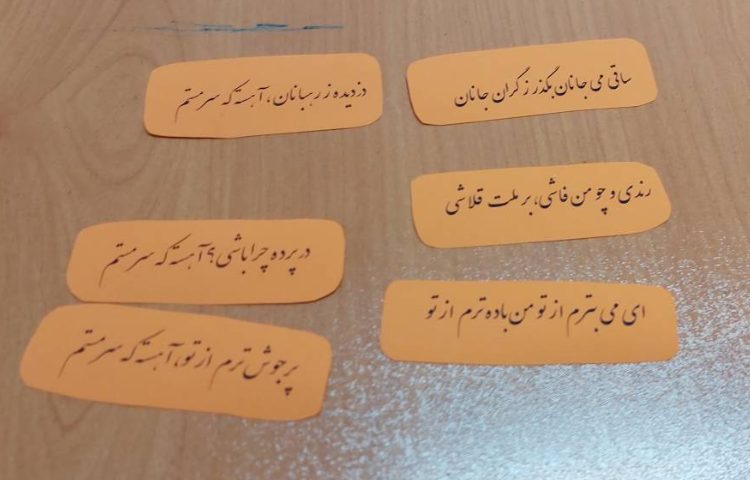 ساقی می جانان بگذر ز گران جانان
دزدیده ز رهبانان، آهسته که سرمستم
رندی و چو من فاشی، بر ملت قلاشی
در پرده چرا باشی؟ آهسته که سرمستم
ای می بترم از تو من باده ترم از تو
پر جوش ترم از تو، آهسته که سرمستم